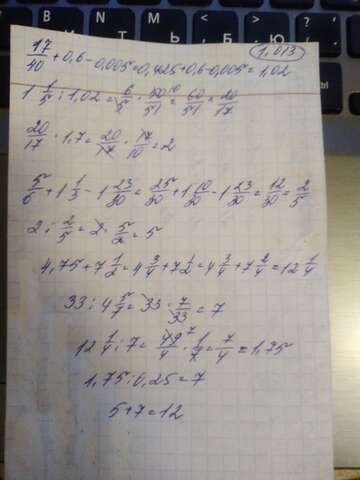 1.013
17/40 + 0,6 - 0,005 = 0,425 + 0,6 - 0,005 = 1,02
1 1/5 : 1,02 = 6/5 · 50/51 = 60/51 = 20/17
20/17 · 1,7 = 20/17 · 17/10 = 2
5/6 + 1 1/3 - 1 23/30 = 25/30 + 1 10/30 - 1 23/30 = 12/30 = 2/5
2 : 2/5 = 2 · 5/2 = 5
4,75 + 7 1/2 = 4 3/4 + 7 1/2 = 4 3/4 + 7 2/4 = 12 1/4
33 : 4 5/7 = 33 · 7/33 = 7
12 1/4 : 7 = 49/4 · 1/7 = 7/4 = 1,75
1,75 : 0,25 = 7
5 + 7 = 12